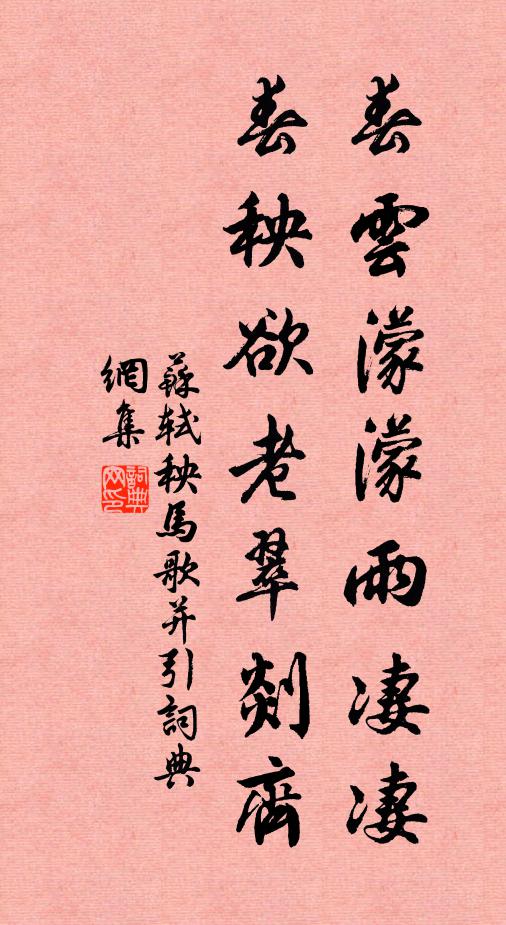 春雲濛濛雨淒淒
春秧欲老翠剡齊
蘇軾秧馬歌并引詞典
網集
詞典網印